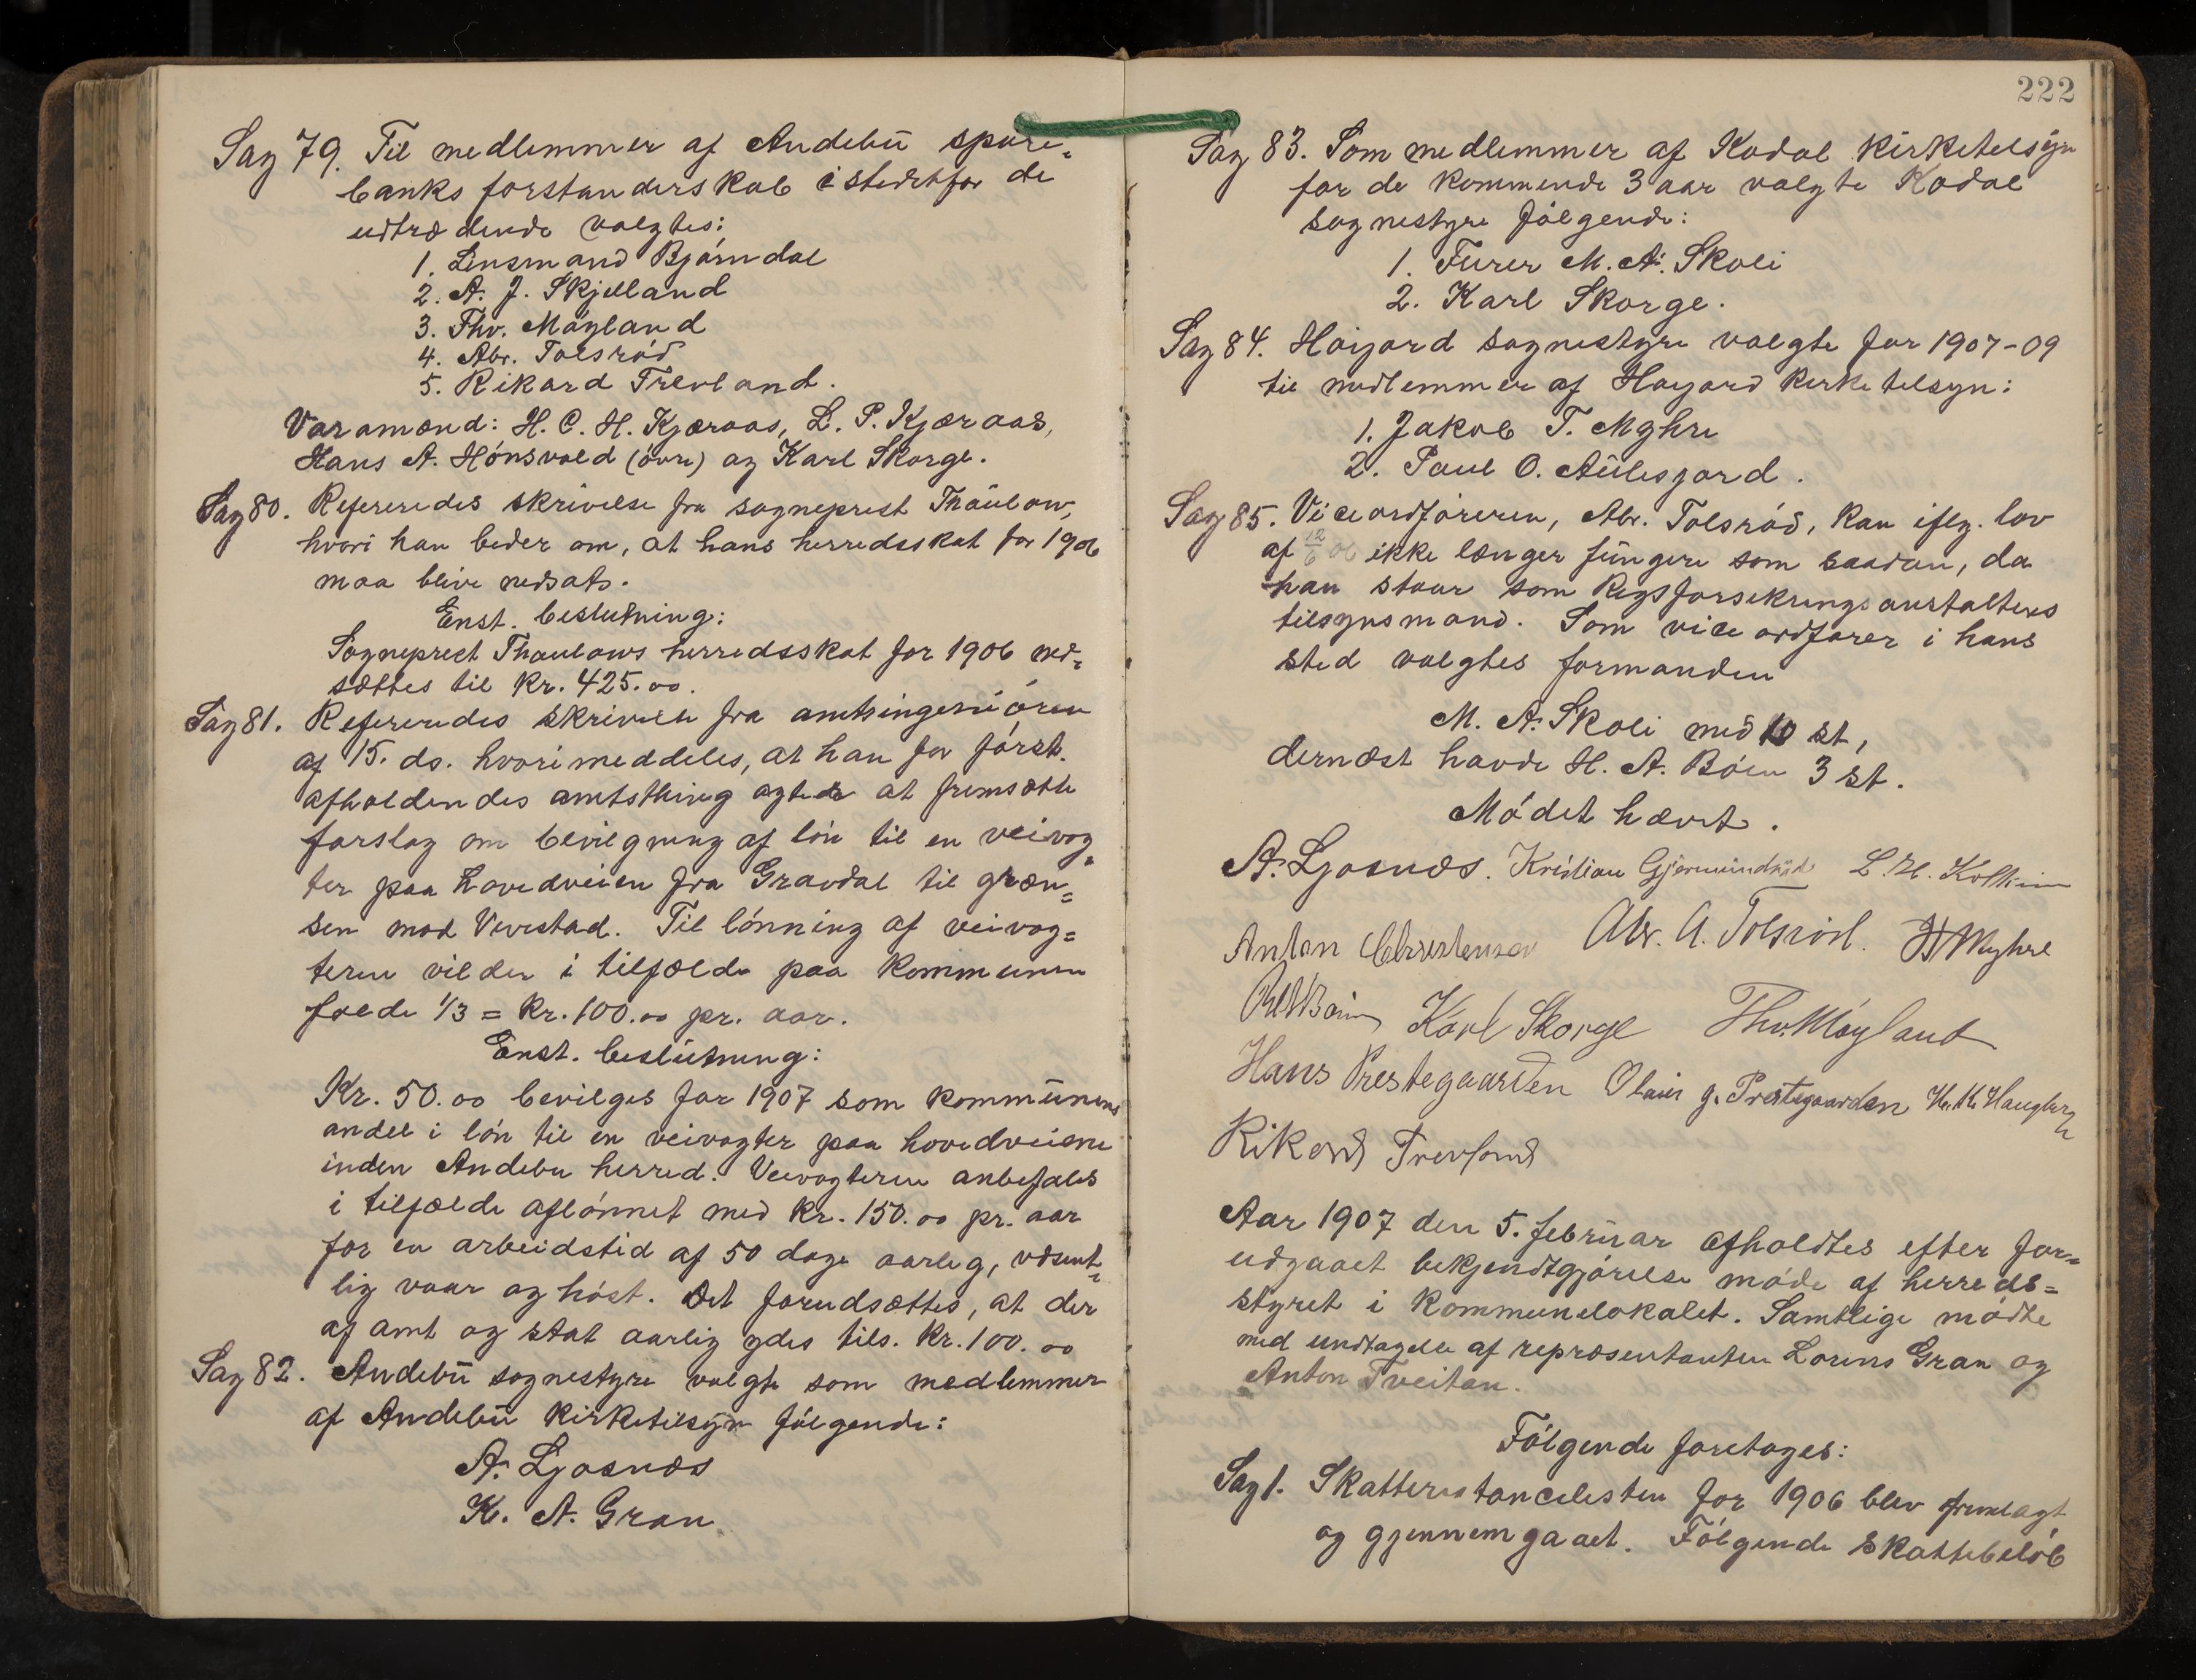 Sag 79. Til medlemmer af Andebu spare-
banks forstanderskab istedetfor de
udtrædende valgtes:
1. Lensmand Bjørndal
2. A. J. Skjelland
3. Thv. Møyland
4. Abr. Tolsrød
5. Rikard Trevland.
Varamænd: H. C. H. Kjæraas, L. P. Kjæraas,
Hans A. Hønsvald (øvre) og Karl Skorge.
Sag 80. Refereredes skrivelse fra sogneprest Thaulow,
hvori han beder om, at hans herredsskat for 1906
maa blive nedsat.
Enst. beslutning:
Sogneprest Thaulows herredsskat for 1906 ned-
sættes til kr. 425.00.
Sag 81. Refereredes skrivelse fra amtsingeniøren
af 15. ds. hvori meddeles, at han for først.
afholdendes amtsthing agtede at fremsætte
forslag om bevilgning af løn til en veivog-
ter paa hovedveien fra Gravdal til græn-
sen mod Vivestad. Til lønning af veivog-
teren vil der i tilfælde paa kommunen
falde 1/3 = kr. 100.00 pr. aar.
Enst. beslutning:
Kr. 50.00 bevilges for 1907 som kommunens
andel i løn til en veivogter paa hovedveiene
inden Andebu herred. Veivogteren anbefales
i tilfælde aflønnet med kr. 150.00 pr. aar
for en arbeidstid af 50 dage aarleg, væsent-
lig vaar og høst. Det forudsættes, at der
af amt og stat aarlig ydes tils. kr. 100.00
Sag 82. Andebu sognestyre valgte som medlemmer
af Andebu kirketilsyn følgende:
A. Ljosnæs
K. A. Gran
222
Sag 83. Som medlemmer af Kodal kirketilsyn
for de kommende 3 aar valgte Kodal
sognestyre følgende:
1. Furer M. A. Skoli
2. Karl Skorge.
Sag 84. Høijord sognestyre valgte for 1907-09
til medlemmer af Høijord kirketilsyn:
1. Jakob T. Myhre
2. Paul O. Aulesjord.
Sag 85. Viceordføreren, Abr. Tolsrød, kan iflg. lov
af 12/6 06 ikke længer fungere som saadan, da
han staar som Rigsforsikringsanstaltens
tilsynsmand. Som viceordfører i hans
sted valgtes formanden
M. A. Skoli med 10 st,
dernæst havde H. A. Bøen 3 st.
Mødet hævet.
A. Ljosnæs. Kristian Gjermundrød L. H.
Anton Christensen Abr. A. Tolsrød. Myhre
Karl Skorge Thv. Møyland
Hans Prestegaarden Olaus g. Prestegaarden Haugberg
Rikard Trevland
Aar 1907 den 5. februar afholdtes efter for-
udgaaet bekjendtgjørelse møde af herreds-
styret i kommunelokalet. Samtlige mødte
med undtagelse af repræsentanten Lorens Gran og
Anton Tveitan.
Følgende foretoges:
Sag 1. Skatterestancelisten for 1906 blev fremlagt
og gjennemgaaet. Følgende skattebeløb